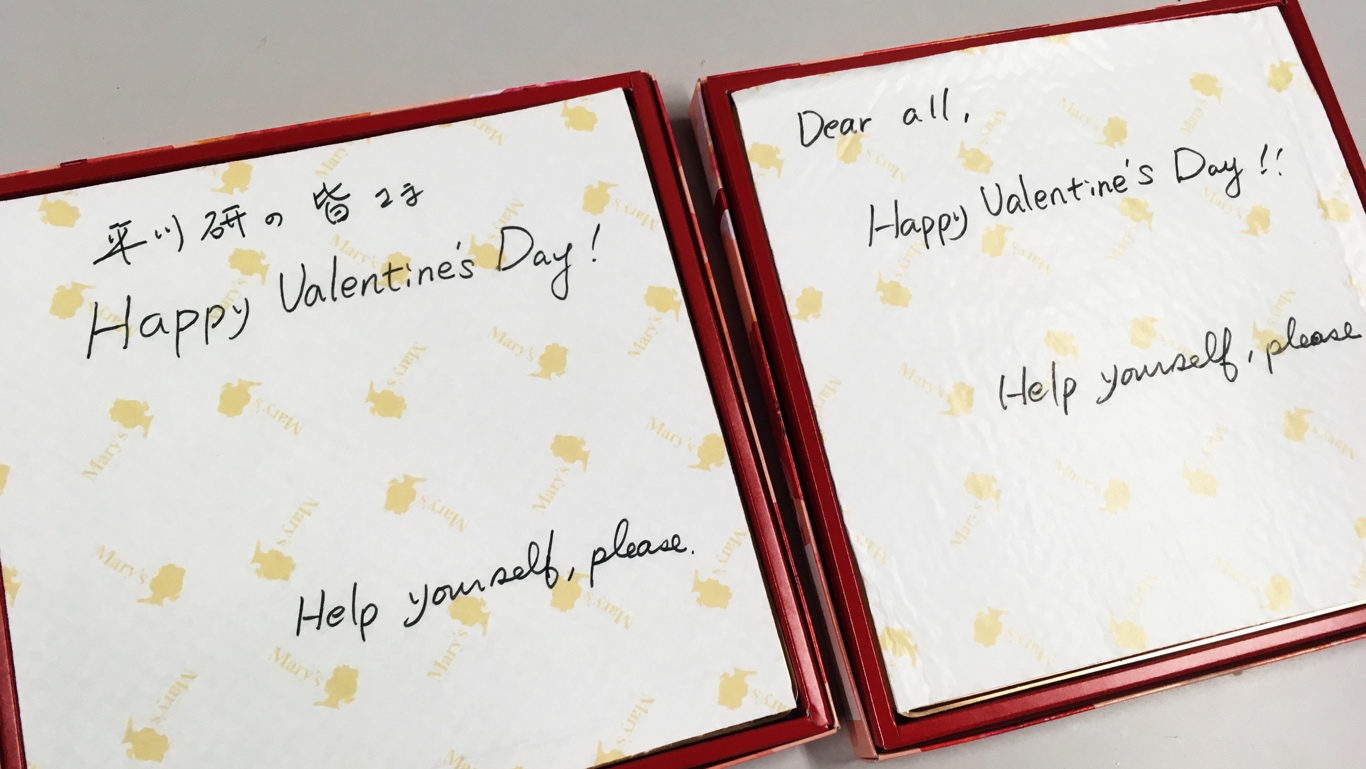 平川研の皆さま
Happy Valentine's Day!
Help yourself, please.
Dear all,
Happy Valentine's Day!!
Help yourself, please
Mary's